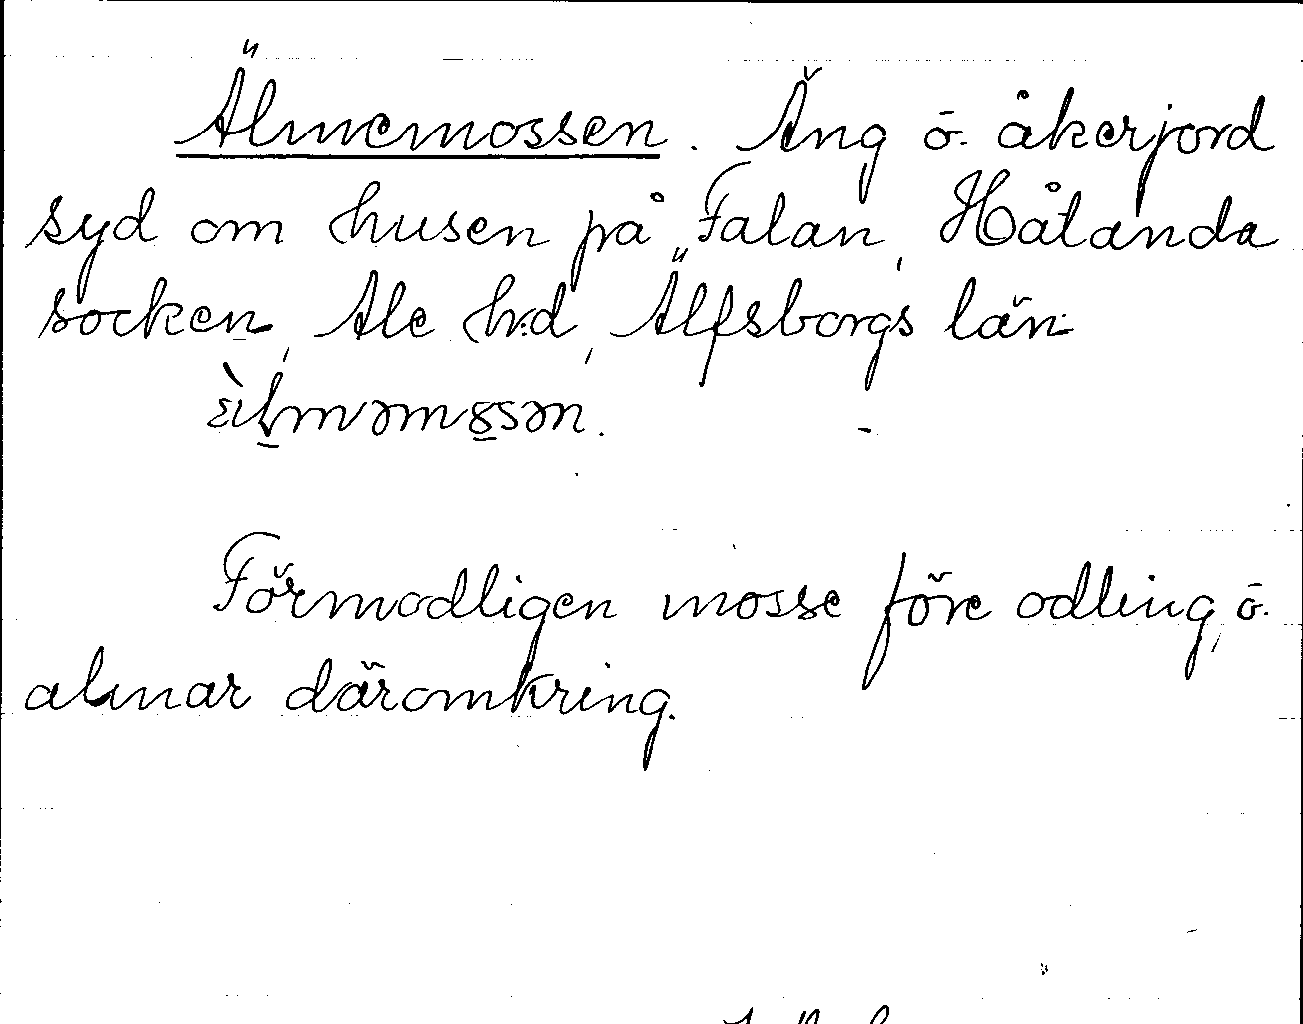 Älmemossen. Äng o. åkerjord
syd om husen på Falan, Hålanda
socken, Ale h:d, Älfsborgs län

Förmodligen mosse före odling, o.
almar däromkring.